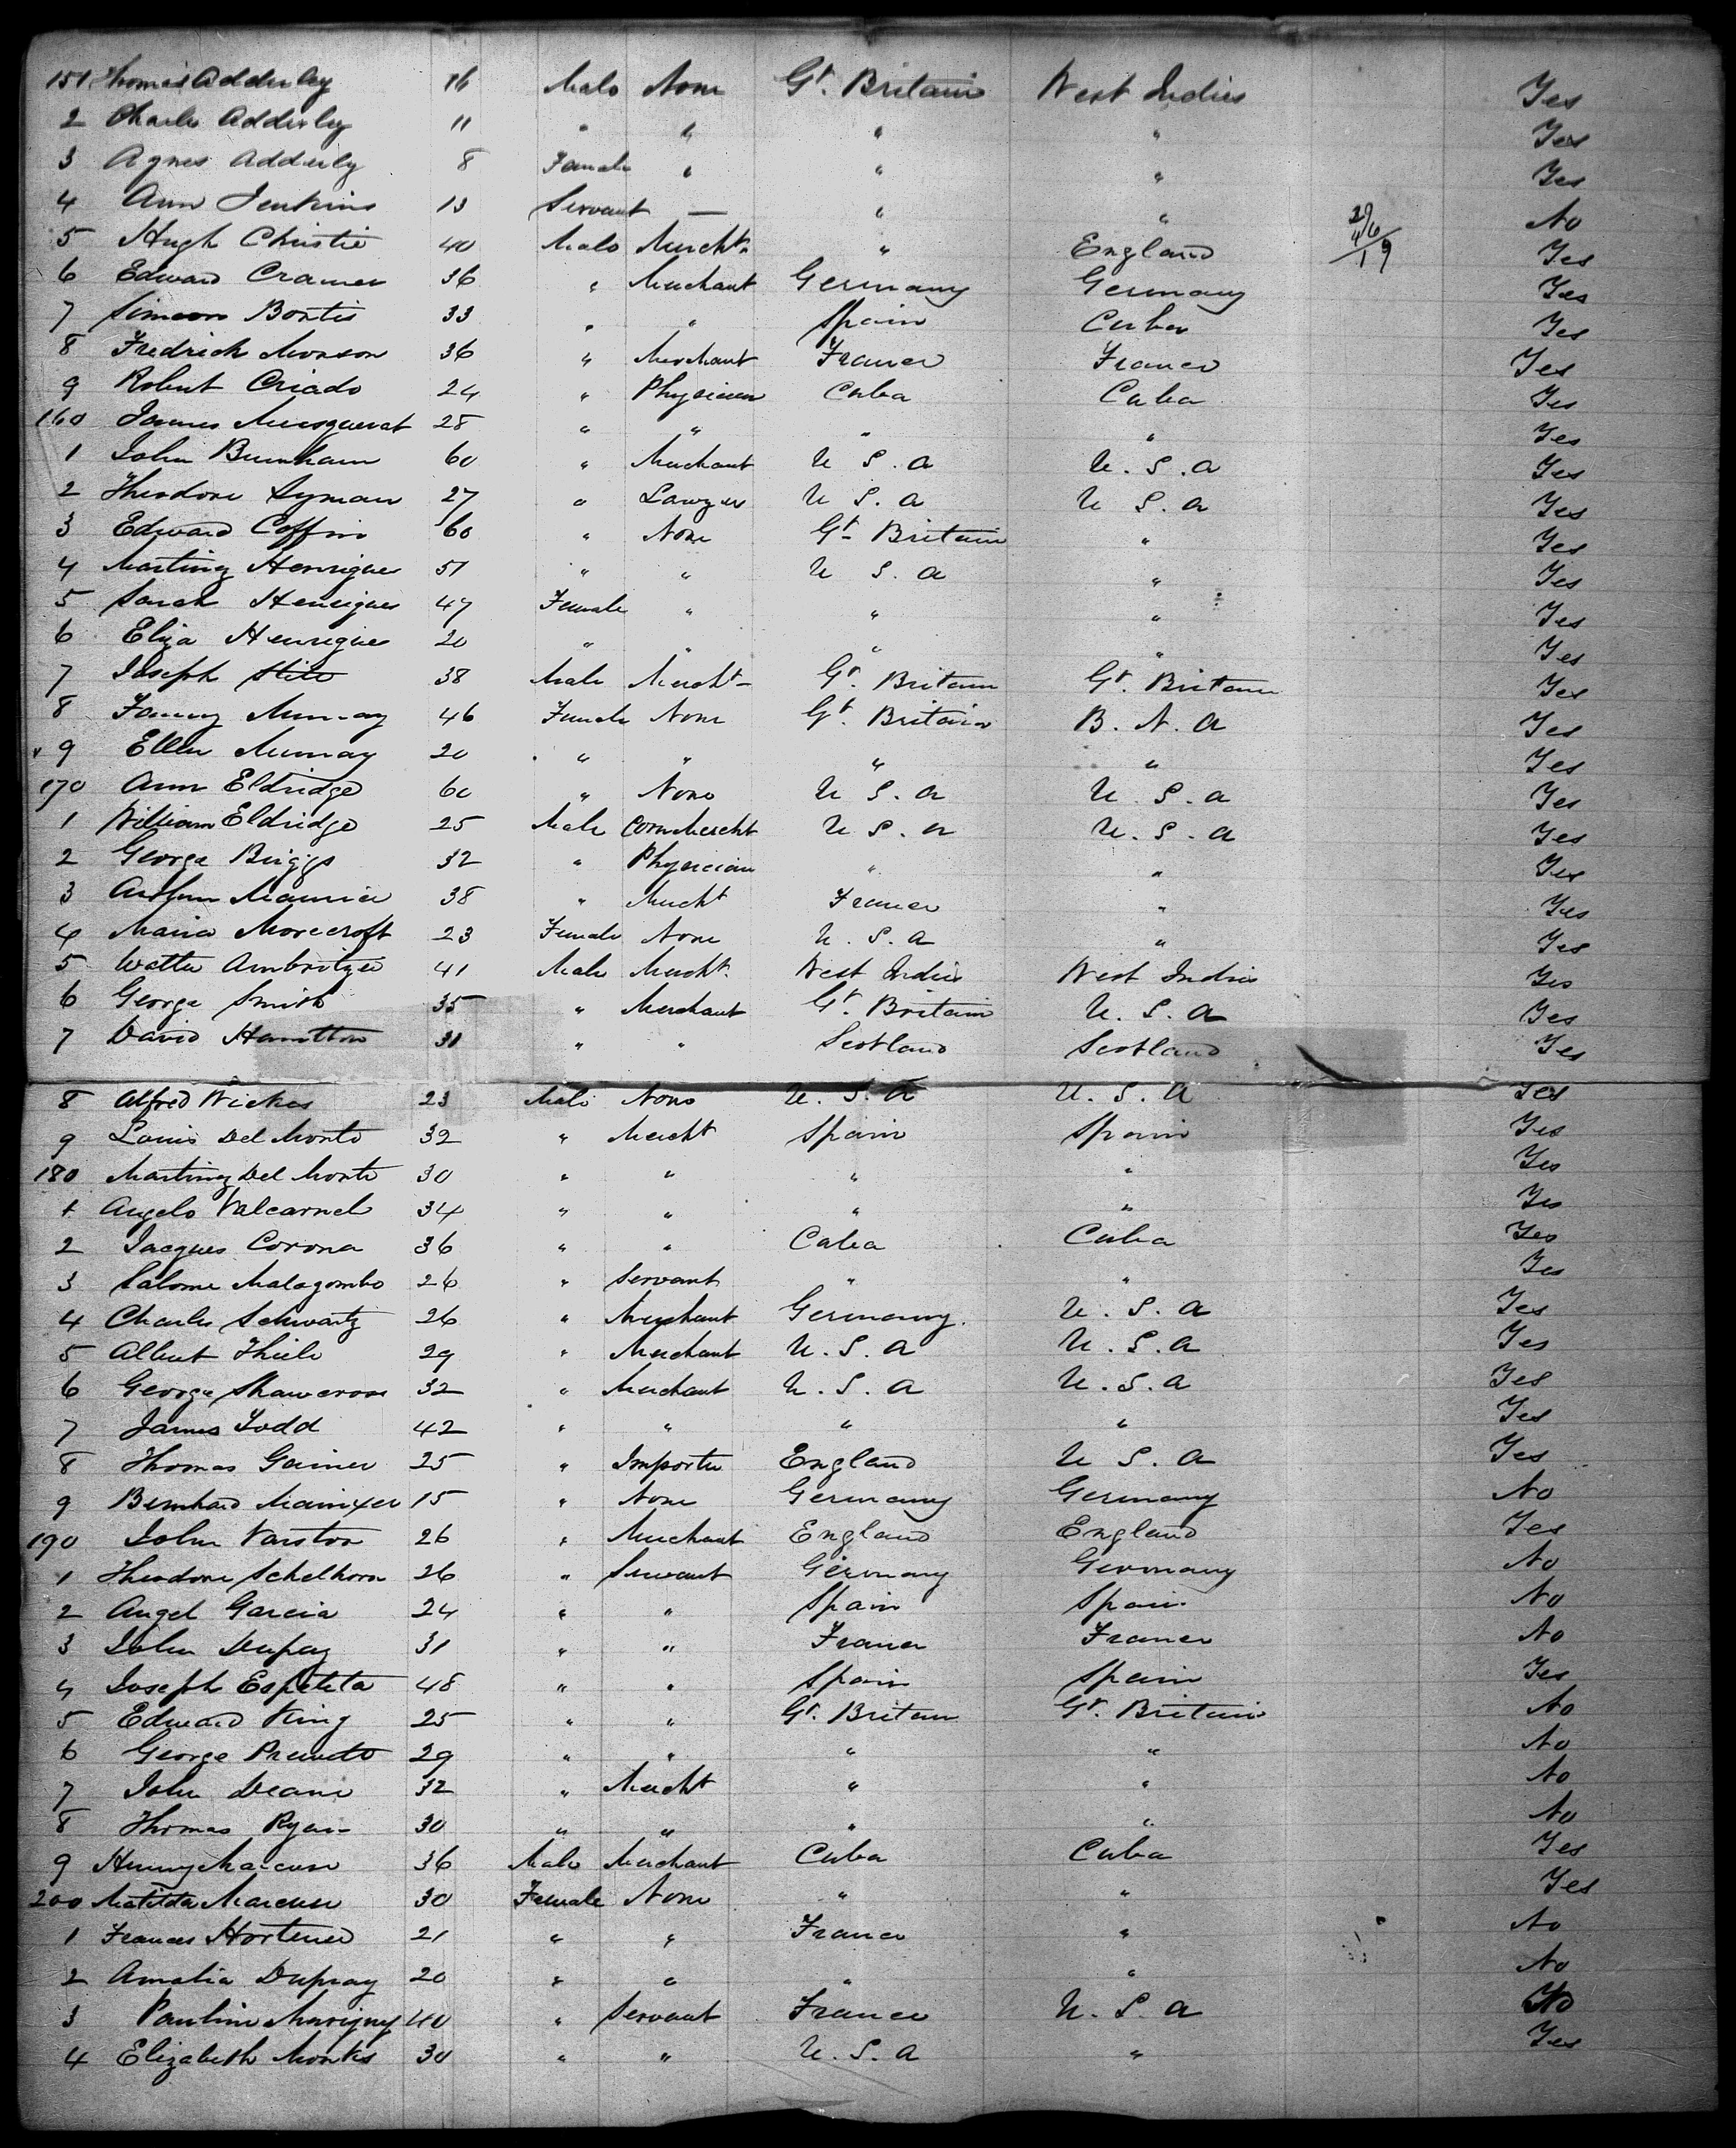 151 Thomas Adderley 16 Male None Gt. Britain West Indies Yes
2 Charles Adderley 11 " " " " Yes
3 Agnes Adderly 8 Female " " " Yes
4 Ann Jenkins 13 Servant — " " No
5 Hugh Christie 40 Male Mercht. " England Yes
6 Edward Cramer 36 " Merchant Germany Germany Yes
7 Simeon Bontis 33 " " Spain Cuba Yes
8 Fredrich Monson 36 " Merchant France France Yes
9 Robert Criado 24 " Physician Cuba Cuba Yes
160 28 " " " " Yes
1 John Burnham 60 " Merchant U S. A U. S. A Yes
2 Theodore Lyman 27 " Lawyer U S. A U S. A Yes
3 Edward Coffin 60 " None Gt. Britain " Yes
4 Martinez Henriques 51 " " U S. A " Yes
5 Sarah Henriques 47 Female " " " Yes
6 Eliza Henriques 20 " " " " Yes
7 Joseph 38 Male Mercht. Gt. Britain Gt. Britain Yes
8 Fanny Murray 46 Female None Gt. Britain B. N. A Yes
9 Ellen Murray 20 " " " " Yes
170 Ann Eldridge 60 " None U S. A U. S. A Yes
1 William Eldridge 25 Male Com Mercht U S. A U. S. A Yes
2 George Briggs 32 " Physician " " Yes
3 Arthur Maurice 38 " Mercht France " Yes
4 Maria Morecroft 23 Female None U. S. A " Yes
5 Walter Ambritzer 41 Male Mercht. West Indies West Indies Yes
6 George Smith 35 " Merchant Gt. Britain U. S. A Yes
7 David Hamilton 31 " " Scotland Scotland Yes
8 Alfred Wickes 23 Male None U. S. A U. S. A Yes
9 Louis Del Monte 32 " Mercht Spain Spain Yes
180 Martinez Del Monte 30 " " " " Yes
1 Angelo Valcarnel 34 " " " " Yes
2 Jacques Corona 36 " " Cuba Cuba Yes
3 Salome Malagombo 26 " Servant " " Yes
4 Charles Schwartz 26 " Merchant Germany. U. S. A Yes
5 Albert Thiele 29 " Merchant U. S. A U. S. A Yes
6 George Shawcross 32 " Merchant U. S. A U. S. A Yes
7 James Todd 42 " " " " Yes
8 Thomas Gainer 25 " Importer England U S. A Yes
9 Bernhard 15 " None Germany Germany No
190 John 26 " Merchant England England Yes
1 Theodore Schelhorn 26 " Servant Germany Germany No
2 Angel Garcia 24 " " Spain Spain No
3 John Dupay 31 " " France France No
4 Joseph Espeleta 48 " " Spain Spain Yes
5 Edward King 25 " " Gt. Britain Gt. Britain No
6 George 29 " " " " No
7 John Deane 32 " Mercht " " No
8 Thomas Ryan 30 " " " " No
9 Henry Marcuse 36 Male Merchant Cuba Cuba Yes
200 Matilda Marcuse 30 Female None " " Yes
1 Frances Hortense 21 " " France " No
2 Amalia Dupray 20 " " " " No
3 Pauline Marigny 40 " Servant France U. S. A No
4 Elizabeth Monks 30 " " U. S. A " Yes